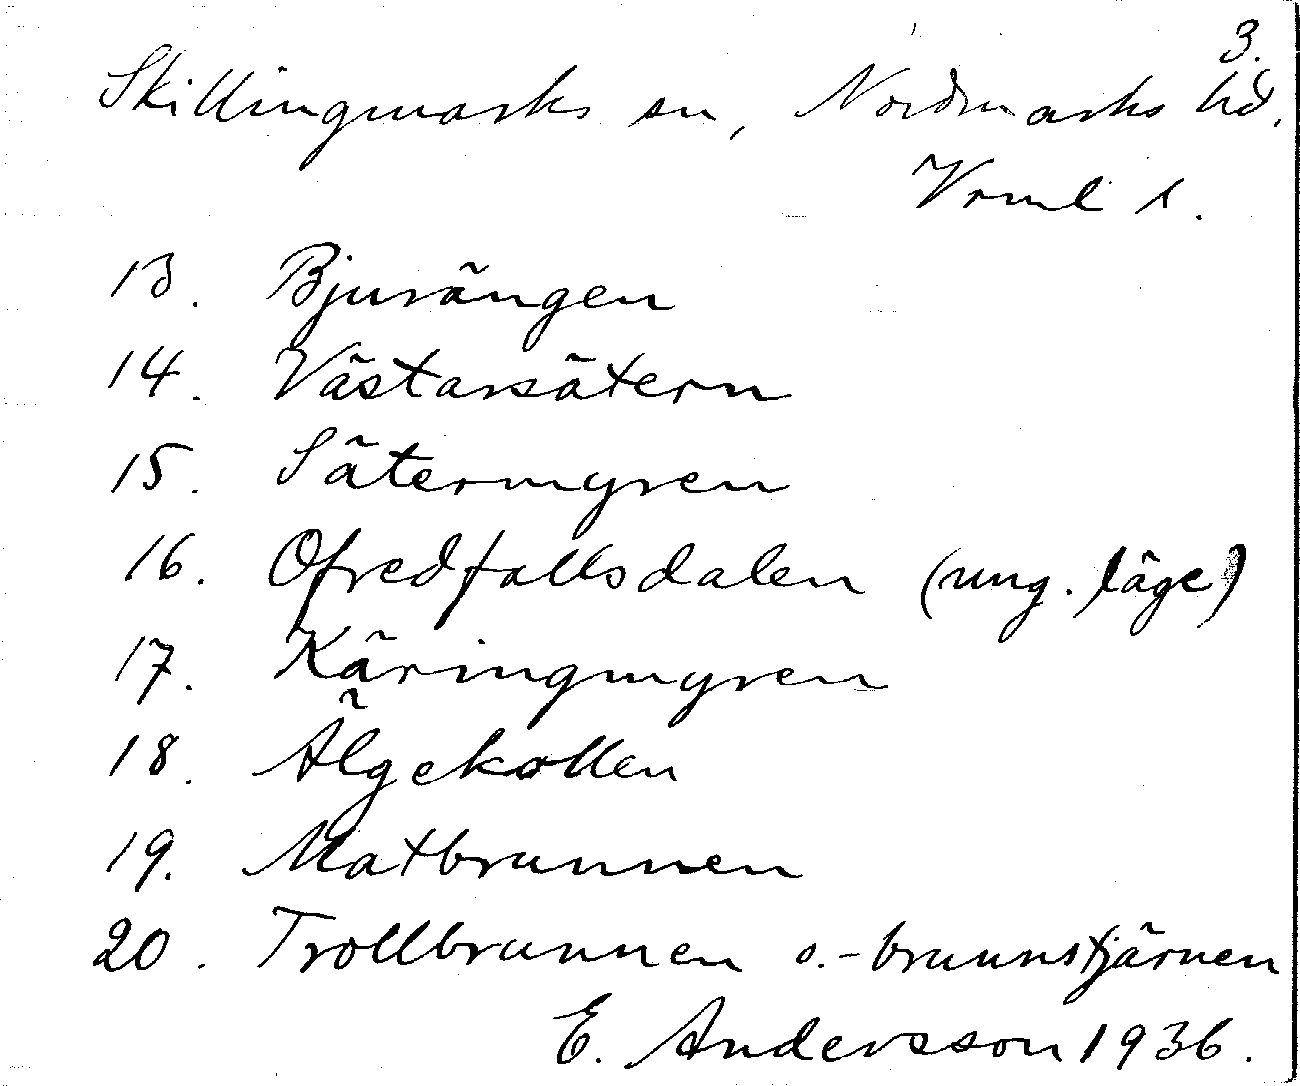 3.
Skillingmarks sn, Nordmarks hd.
Vrml l.
13. Bjurängen
14. Västarsätern
15. Sätermyren
16. Ofredfallsdalen (ung. läge)
17. Käringmyren
18. Älgekollen
19. Matbrunnen
20. Trollbrunnen o.-brunnstjärnen
E. Andersson 1936.